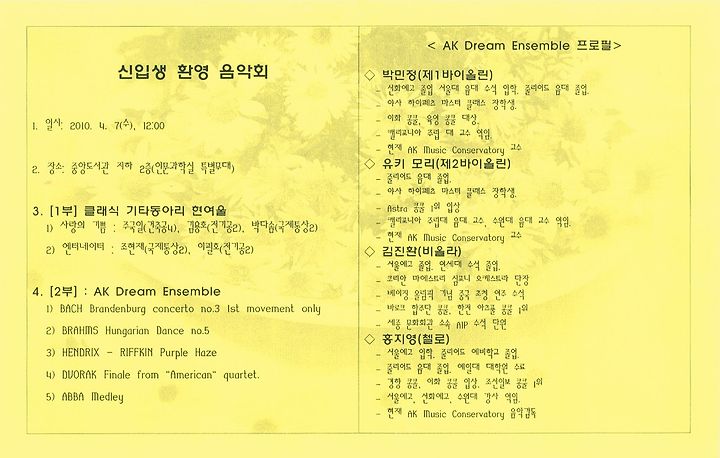 신입생 환영 음악회
1. 일시: 2010. 4. 7(수), 12:00
2. 장소: 중앙도서관 지하 2층(인문과학실 특별무대)
3. [1부] 클래식 기타동아리 현여울
1) 사랑의 기쁨 : 주국일(건축공4), 김용호(전기공2), 박다솜(국제통상2)
2) 엔터테이너 : 조현재(국제통상2), 이필호(전기공2)
4. [2부] : AK Dream Ensemble
1) BACH Brandenburg concerto no.3 1st movement only
2) BRAHMS Hungarian Dance no.5
3) HENDRIX - RIFFKIN Purple Haze
4) DVORAK Finale from "American" quartet.
5) ABBA Medley
< AK Dream Ensemble 프로필>
◇ 박민정(제1바이올린)
- 선화예고 졸업, 서울대 음대 수석 입학, 줄리어드 음대 졸업.
- 야사 하이페츠 마스터 클래스 장학생.
- 이화 콩쿨, 육영 콩쿨 대상.
- 캘리포니아 주립 대 교수 역임.
- 현재 AK Music Conservatory 교수
◇ 유키 모리(제2바이올린)
- 줄리어드 음대 졸업.
- 야사 하이페츠 마스터 클래스 장학생.
- Astra 콩쿨 1위 입상
- 캘리포니아 주립대 음대 교수, 수원대 음대 교수 역임.
- 현재 AK Music Conservatory 교수
◇ 김진환(비올라)
- 서울예고 졸업, 연세대 수석 졸업.
- 코리안 마에스트리 심포니 오케스트라 단장
- 베이징 올림픽 기념 중국 초청 연주 수석
- 바로크 합주단 콩쿨, 한전 아츠풀 콩쿨 1위
- 세종 문화회관 소속 AIP 수석 단원
◇ 홍지영(첼로)
- 서울예고 입학, 줄리어드 예비학교 졸업.
- 줄리어드 음대 졸업, 예일대 대학원 수료
- 경향 콩쿨, 이화 콩쿨 입상, 조선일보 콩쿨 1위
- 서울예고, 선화예고, 수원대 강사 역임.
- 현재 AK Music Conservatory 음악감독